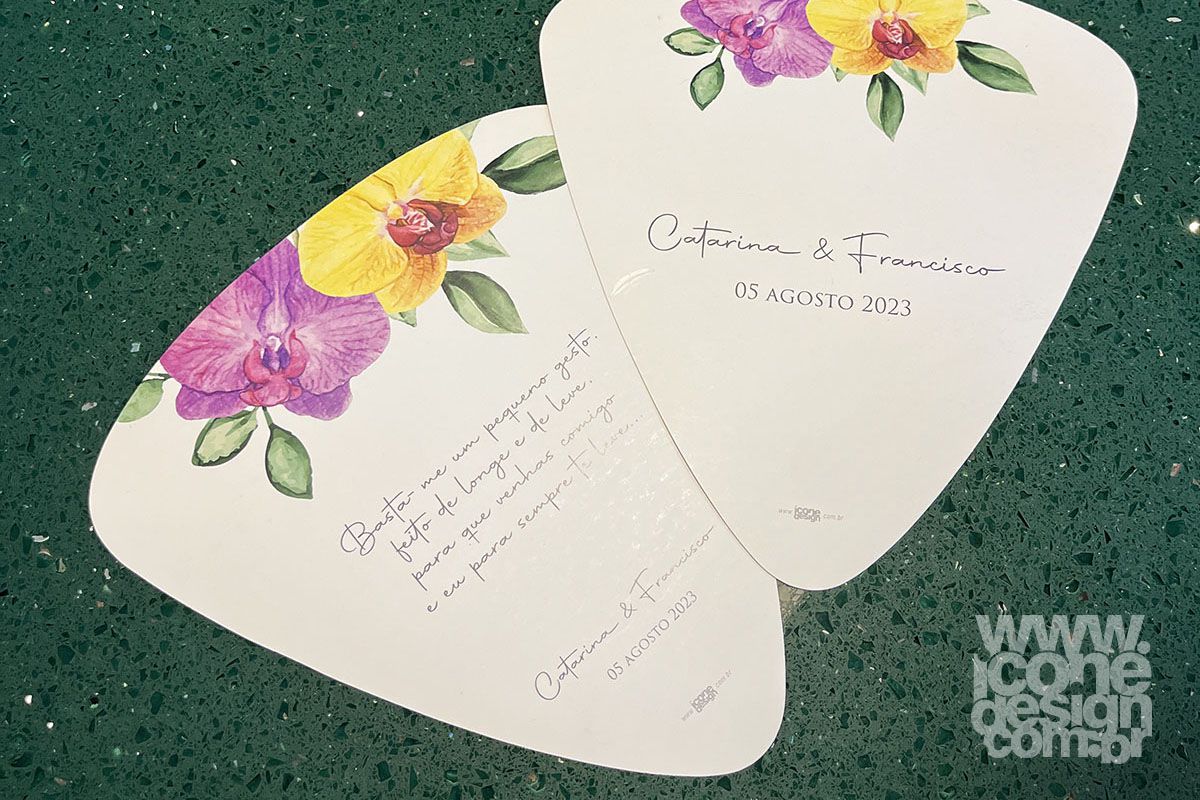 Catarina & Francisco
05 AGOSTO 2023
www.iconedesign.com.br
Basta-me um pequeno gesto,
feito de longe e de leve,
para que venhas comigo
e eu para sempre te leve...
Catarina & Francisco
05 AGOSTO 2023
www.iconedesign.com.br
www.
icone
design
com.br